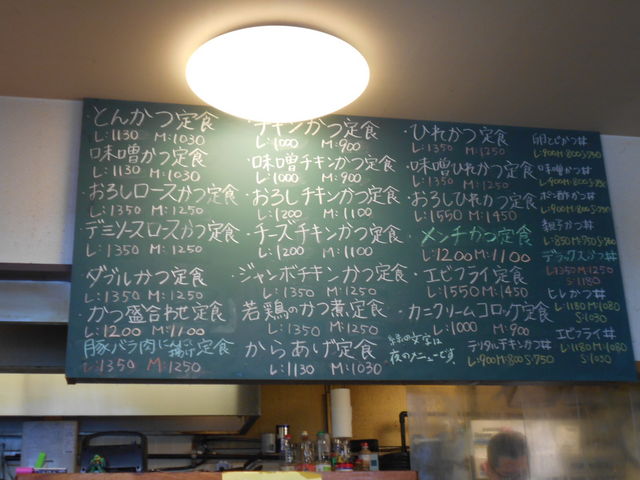 ・とんかつ定食
L:1130 M:1030
味噌かつ定食
L:1130 M:1030
おろしロースかつ定食
L:1350 M:1250
・デミソースロースかつ定食
L:1350 M:1250
ダブルかつ定食
L:1350 M:1250
・かつ盛合わせ定食
L:1200 M:1100
豚バラ肉にんにく揚げ定食
L:1350 M:1250
チキンかつ定食
L:1000 M:900
・味噌チキンかつ定食
L:1000 M:900
・おろしチキンかつ定食
L:1200 M:1100
・チーズチキンかつ定食
L:1200 M:1100
・ジャンボチキンかつ定食
L:1350 M:1250
若鶏のかつ煮定食
L:1350 M:1250
・からあげ定食
L:1130 M:1030
・ひれかつ定食
L:1350 M:1250
・味噌ひれかつ定食
L:1350 M:1250
・おろしひれかつ定食
L:1550 M:1450
・メンチかつ定食
L:1200 M:1100
・エビフライ定食
L:1550 M:1450
・カニクリームコロッケ定食
L:1000 M:900
緑の文字は
夜のメニューです
卵とじかつ丼
L:900 M:800 S:750
味噌かつ丼
L:900 M:800 S:750
ポン酢かつ丼
L:900 M:800 S:750
親子かつ丼
L:850 M:750 S:700
デラックスかつ丼
L:1350 M:1250
S:1180
ヒレかつ丼
L:1180 M:1080
S:1030
エビフライ丼
L:1180 M:1080
S:1030
デジタルチキンかつ丼
L:900 M:800 S:750